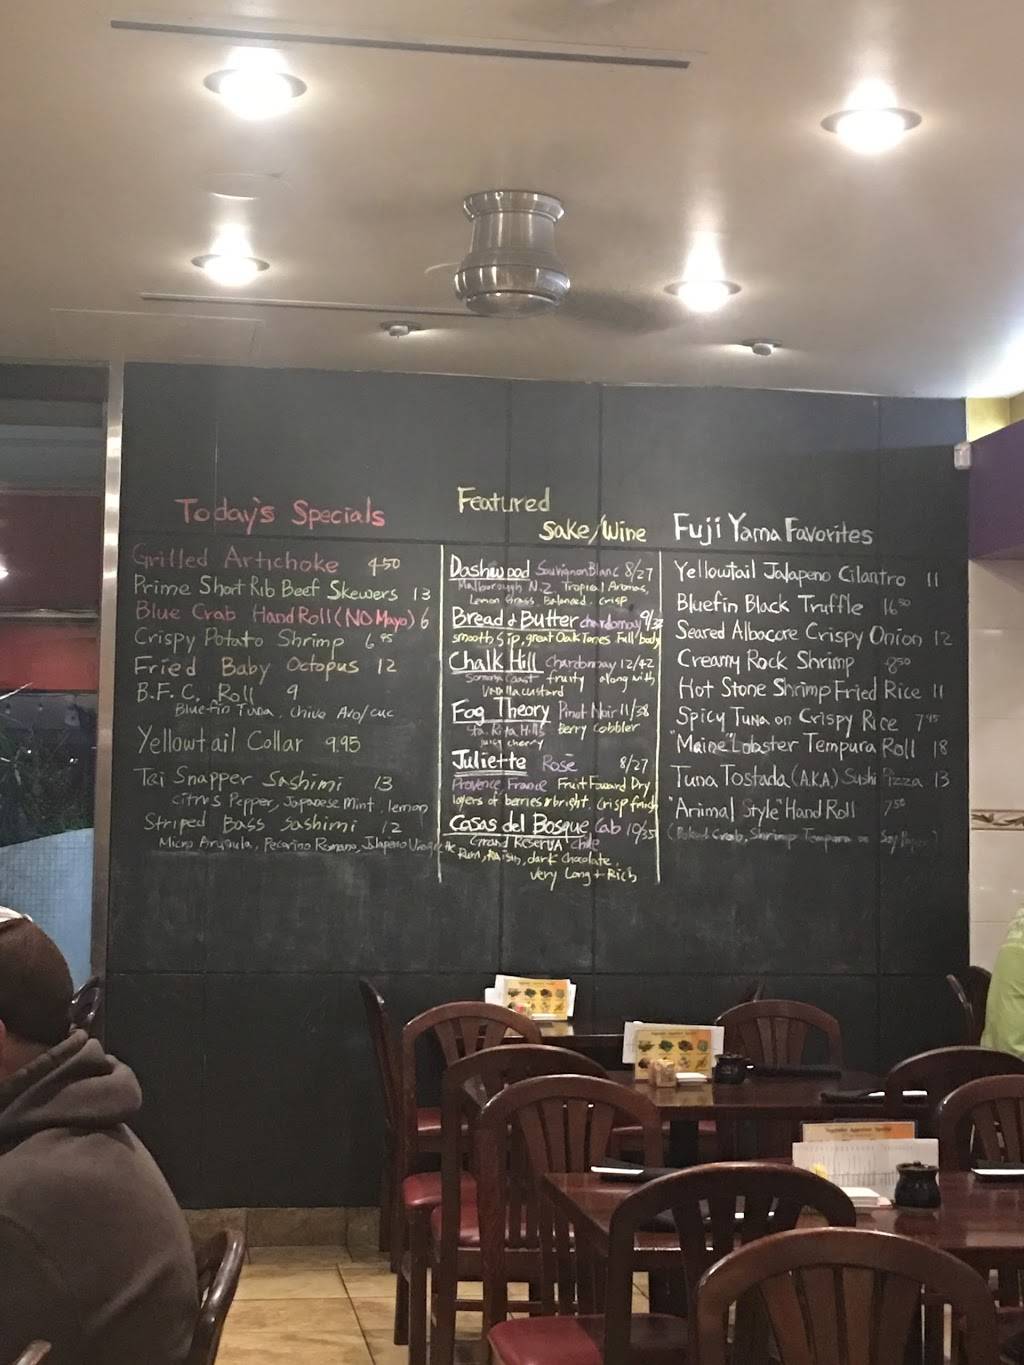 Today's Specials
Grilled Artichoke 4.50
Prime Short Rib Beef Skewers 13
Blue Crab Hand Roll (NO Mayo) 6
Crispy Potato Shrimp 6.95
Fried Baby Octopus 12
B.F.C. Roll 9
Bluefin Tuna, Chive Avo/cuc
Yellowtail Collar 9.95
Tai Snapper Sashimi 13
Citrus Pepper, Japanese Mint, lemon
Striped Bass Sashimi 12
Micro Arugula, Pecorino Romano, Jalapeno Vinaigrette
Featured
Sake/Wine
Dashwood Sauvignon Blanc 8/27
Malborough N.Z. Tropical Aromas,
Lemon Grass Balanced crisp
Bread & Butter chardonnay 9/32
smooth sip, great Oak Tones Full body
Chalk Hill Chardonnay 12/42
Sonoma Coast fruity along with
Vanilla custard
Fog Theory Pinot Noir 11/38
Sta. Rita Hills Berry Cobbler
Juicy cherry
Juliette Rosē 8/27
Provence, France Fruit Foward Dry
layers of berries & bright, crisp finish
Casas del Bosque Cab 10/35
Grand Reserva Chile
Rum, Raisin, dark Chocolate,
very Long + Rich
Fuji Yama Favorites
Yellowtail Jalapeno Cilantro 11
Bluefin Black Truffle 16.50
Seared Albacore Crispy Onion 12
Creamy Rock Shrimp 8.50
Hot Stone Shrimp Fried Rice 11
Spicy Tuna on Crispy Rice 7.95
"Maine" Lobster Tempura Roll 18
Tuna Tostada (A.K.A) Sushi Pizza 13
"Animal Style" Hand Roll 7.50
Crab, Shrimp Tempura Soy Paper)